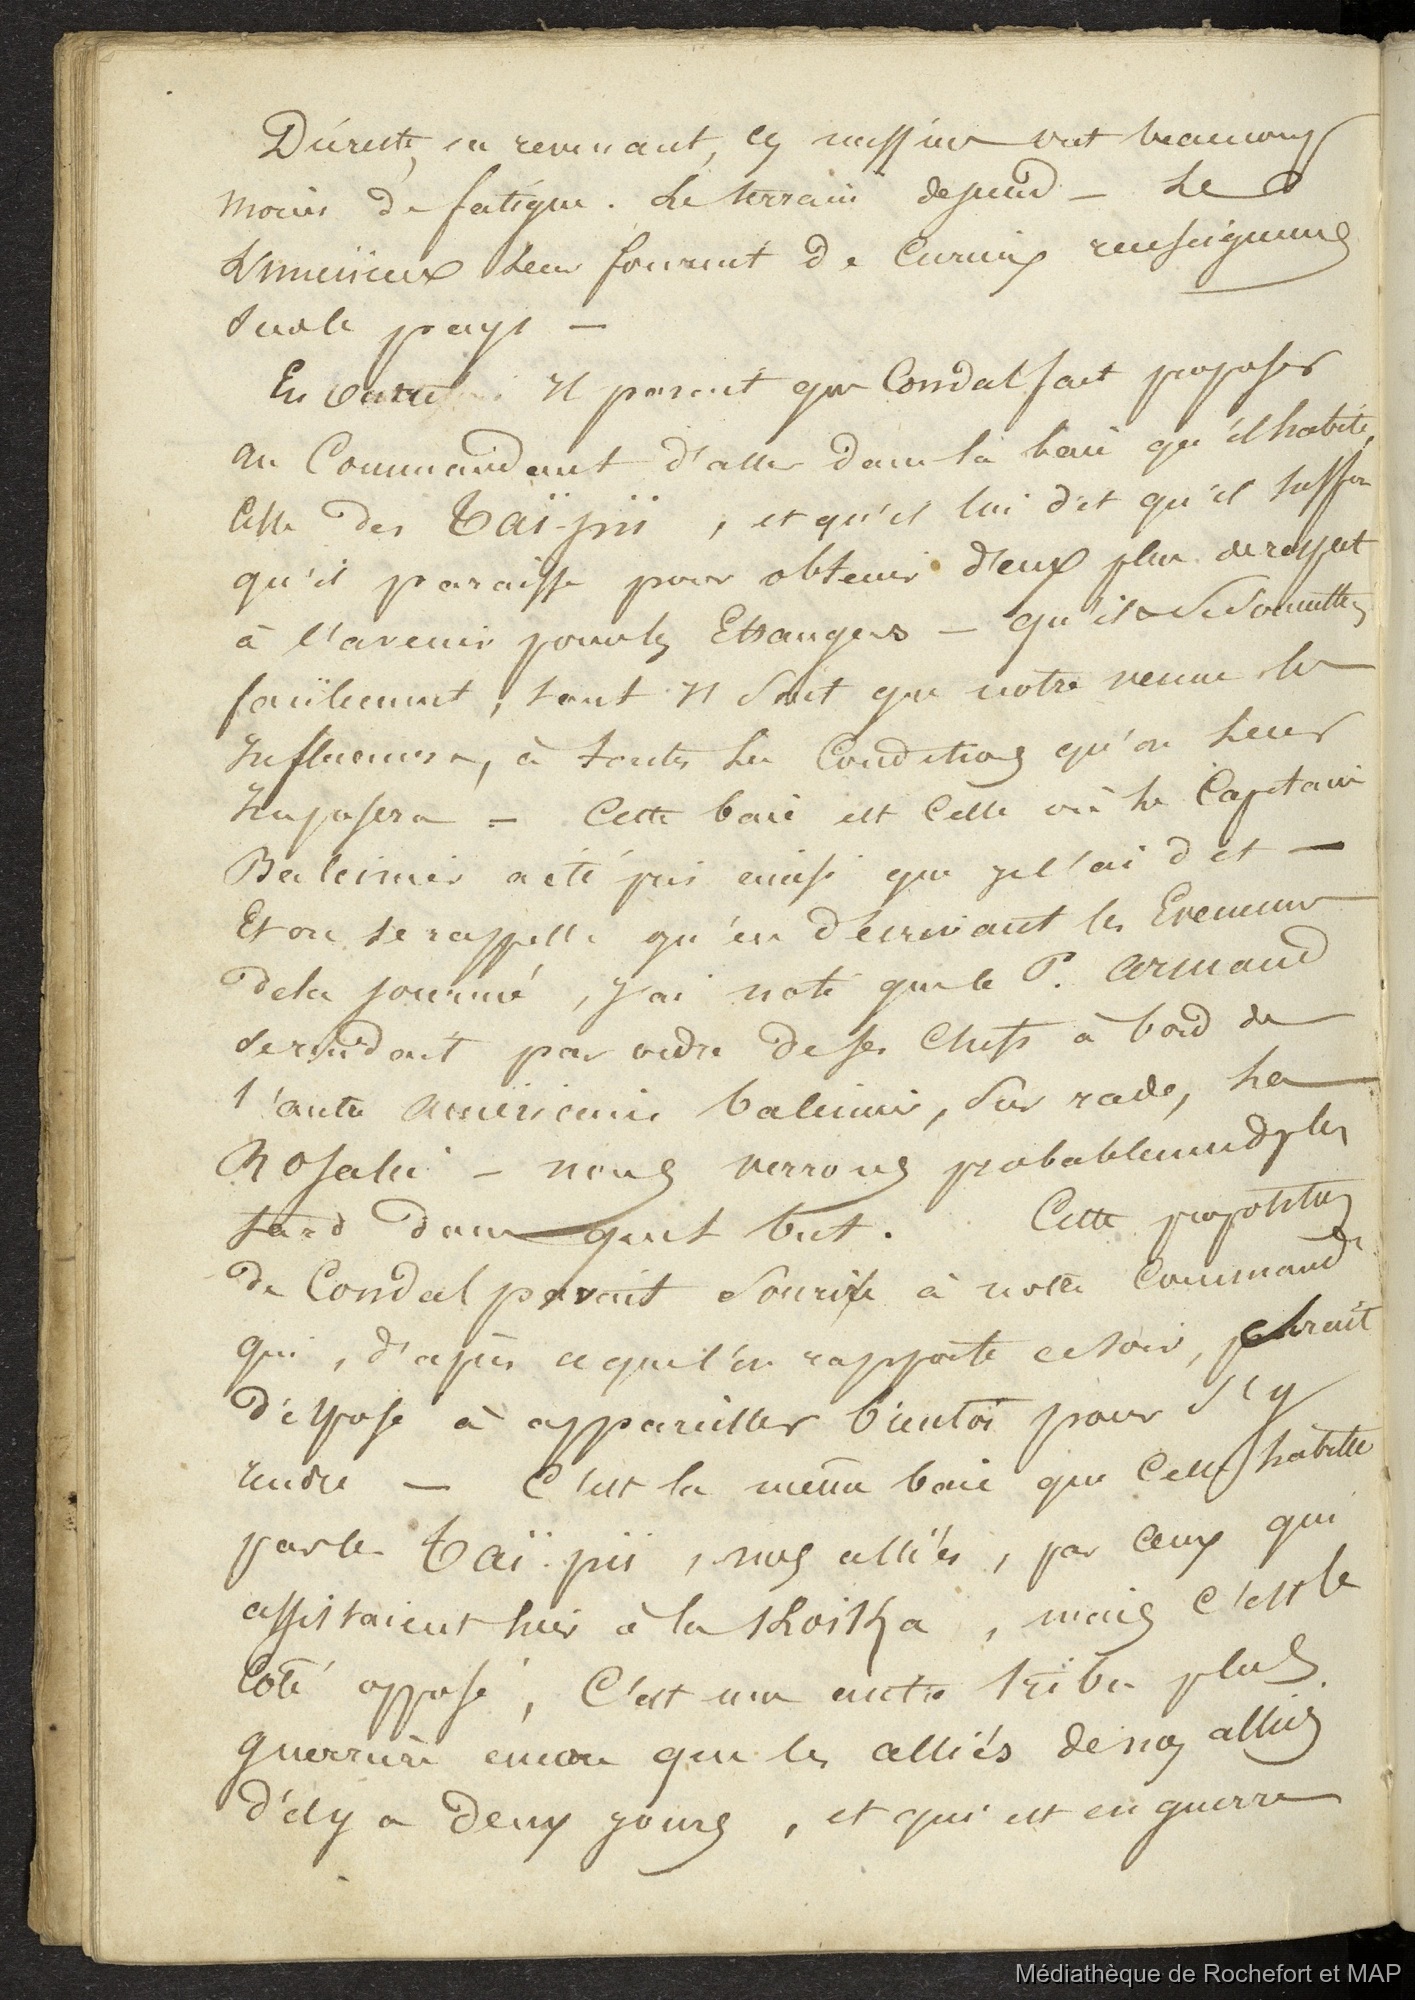 Du reste, en revenant, ces messieurs ont beaucoup
moins de fatigue. Le terrain descend — Le
leur fournit de curieux renseignemens
sur le pays —
En outre il parait que Condal fait proposer
au Commandant d'aller dans la baie qu'il habite,
celle des Taïpii, et qu'il lui dit qu'il suffira
qu'il paraisse pour obtenir d'eux plus de respect
à l'avenir pour les Etrangers — qu'ils se soumettront
facilement, tant il sait que notre venue les
Influencera, à toutes les Conditions qu'on leur
Imposera — Cette baie est celle où le Capitaine
Baleinier a été pris ainsi que je l'ai dit —
Et on se rappelle qu'en décrivant les Evenemens
de la journée, j'ai noté que le P. Armand
se rendait par ordre de ses chefs à bord de
l'autre américain baleinier, sur rade, le
Rosalie — nous verrons probablement plus
tard dans quel but. Cette proposition
de Condal parait sourire à notre Command.t
qui, d'après ce que l'on rapporte ce soir, parait
disposé à appareiller bientôt pour s'y
rendre — C'est la même baie que celle habitée
par les Taï-pii, nos alliés, par ceux qui
assistaient hier à la Khoïka, mais c'est le
côté opposé, C'est une autre tribu plus
guerrière encore que les alliés de nos alliés
d'il y a deux jours, et qui est en guerre
Médiathèque de Rochefort et MAP